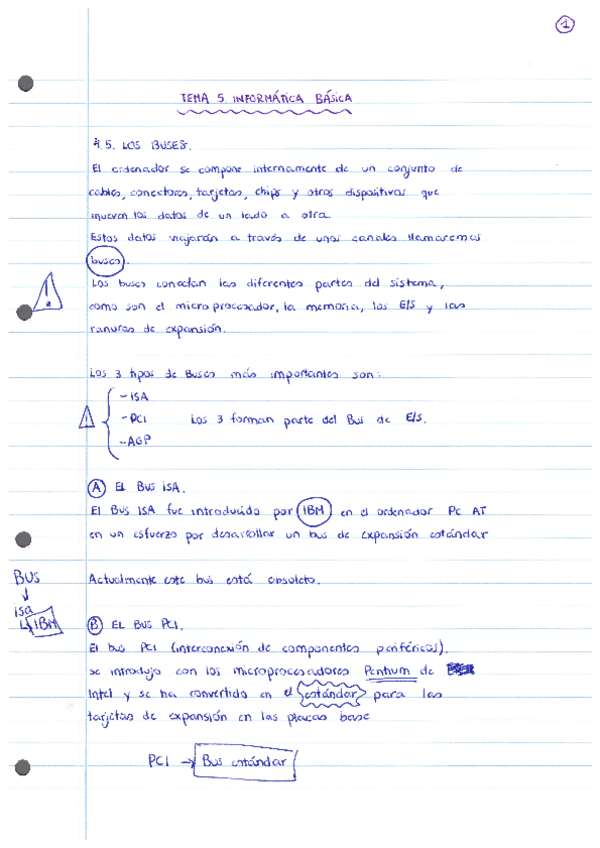 1
TEMA 5 INFORMÁTICA BÁSICA
4.5. LOS BUSES.
El ordenador se compone internamente de un conjunto de
cables, conectores, tarjetas, chips y otros dispositivos que
mueven los datos de un lado a otro.
Estos datos viajarán a través de unos canales llamaremos
buses.
Los buses conectan las diferentes partes del sistema,
como son el microprocesador, la memoria, los E/S y las
ranuras de expansión.
Los 3 tipos de Buses más importantes son:
- ISA
- PCI Los 3 forman parte del Bus de E/S.
- AGP
A EL BUS ISA.
El Bus ISA fue introducido por IBM en el ordenador PC AT
en un esfuerzo por desarrollar un bus de expansión estándar
Actualmente este bus está obsoleto.
BUS
isa
IBM
B EL BUS PCI.
El bus PCI (interconexión de componentes periféricos).
se introdujo con los microprocesadores Pentium de
Intel y se ha convertido en el estándar para las
tarjetas de expansión en las placas base
PCI → Bus estándar